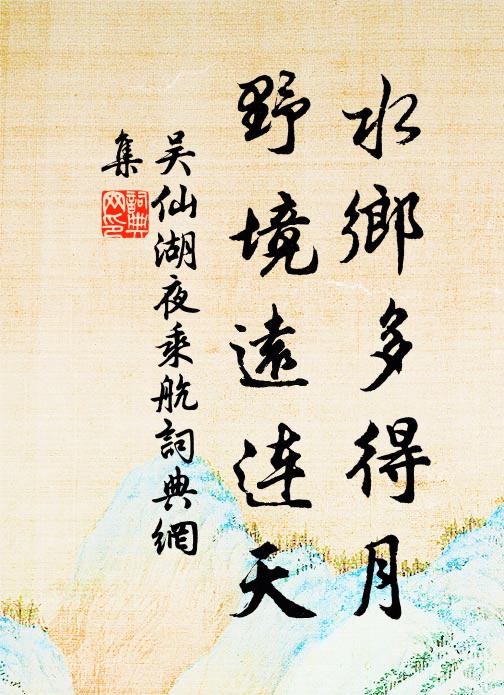 水鄉多得月
野境遠連天
吴仙湖夜乘航詞典網
集
詞典網印